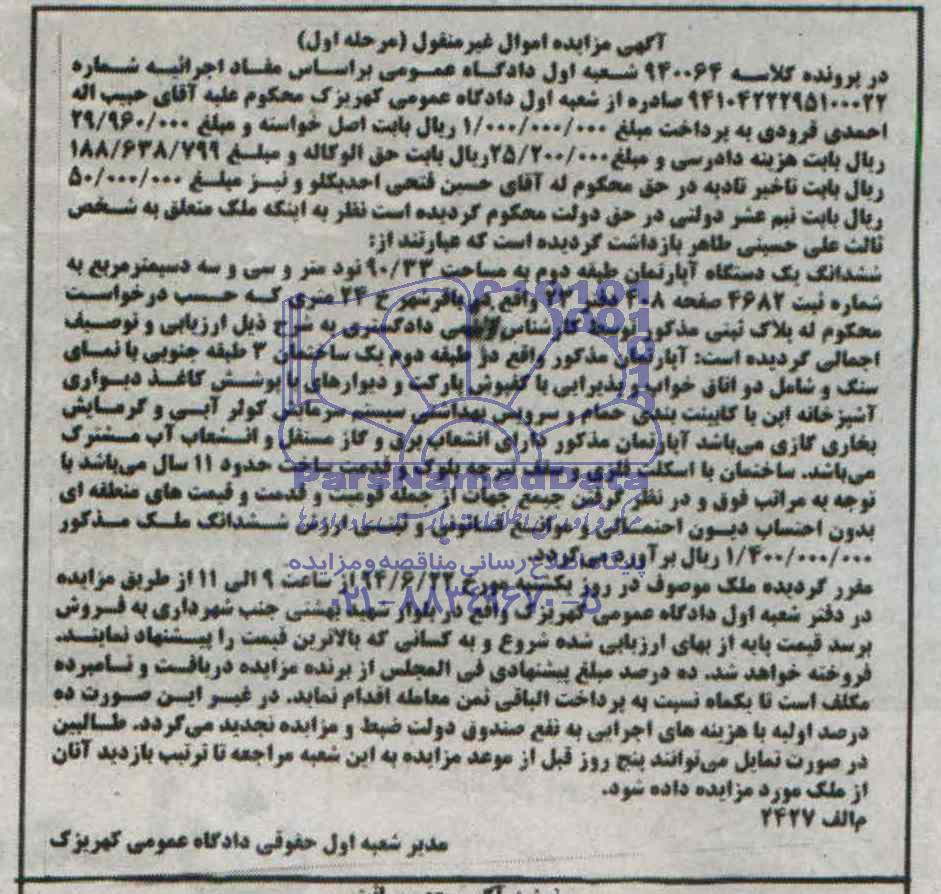 آگهی مزایده اموال غیرمنقول (مرحله اول)
در پرونده کلاسه ۹۴۰۰۶۴ شعبه اول دادگاه عمومی براساس مفاد اجرائیه شماره
۹۴۱۰۴۲۲۲۹۵۱۰۰۰۲۲ صادره از شعبه اول دادگاه عمومی کهریزک محکوم علیه آقای حبیب اله
احمدی فرودی به پرداخت مبلغ ۱/۰۰۰/۰۰۰/۰۰۰ ریال بابت اصل خواسته و مبلغ ۲۹/۹۶۰/۰۰۰
ریال بابت هزینه دادرسی و مبلغ ۲۵/۲۰۰/۰۰۰ریال بابت حق الوکاله و مبلغ ۱۸۸/۶۳۸/۷۹۹
ریال بابت تاخیر تادیه در حق محکوم له آقای حسین فتحی احدبکلو و نیز مبلغ ۵۰/۰۰۰/۰۰۰
ریال بابت نیم عشر دولتی در حق دولت محکوم گردیده است نظر به اینکه ملک متعلق به شخص
ثالث علی حسینی طاهر بازداشت گردیده است که عبارتند از:
ششدانگ یک دستگاه آپارتمان طبقه دوم به مساحت ۹۰/۳۳ نود متر و سی و سه دسیمترمربع به
شماره ثبت ۴۶۸۲ صفحه ۴۰۸ دفتر ۲۳ واقع در باقرشهر خ ۲۴ متری که حسب درخواست
محکوم له پلاک ثبتی مذکور توسط کارشناس رسمی دادگستری به شرح ذیل ارزیابی و توصیف
اجمالی گردیده است: آپارتمان مذکور واقع در طبقه دوم یک ساختمان ۳ طبقه جنوبی با نمای
سنگ و شامل دو اتاق خواب و پذیرایی با کفپوش پارکت و دیوارهای با پوشش کاغذ دیواری
آشپزخانه اپن با کابینت بندی حمام و سرویس بهداشتی سیستم سرمایش کولر آبی و گرمایش
بخاری گازی می‌باشد آپارتمان مذکور دارای انشعاب برق و گاز مستقل و انشعاب آب مشترک
می‌باشد. ساختمان با اسکلت فلزی و سقف تیرچه بلوک و قدمت ساخت حدود ۱۱ سال می‌باشد با
توجه به مراتب فوق و در نظر گرفتن جمیع جهات از جمله قومیت و قدمت و قیمت های منطقه ای
بدون احتساب دیون احتمالی و موانع قانونی و ثبتی ارزش ششدانگ ملک مذکور
۱/۴۰۰/۰۰۰/۰۰۰ ریال برآورد می‌گردد.
مقرر گردیده ملک موصوف در روز یکشنبه مورخ ۹۴/۶/۲۲ از ساعت ۹ الی ۱۱ از طریق مزایده
در دفتر شعبه اول دادگاه عمومی کهریزک واقع در بلوار شهید بهشتی جنب شهرداری به فروش
برسد قیمت پایه از بهای ارزیابی شده شروع و به کسانی که بالاترین قیمت را پیشنهاد نمایند.
فروخته خواهد شد. ده درصد مبلغ پیشنهادی فی المجلس از برنده مزایده دریافت و نامبرده
مکلف است تا یکماه نسبت به پرداخت الباقی ثمن معامله اقدام نماید. در غیر این صورت ده
درصد اولیه با هزینه های اجرایی به نفع صندوق دولت ضبط و مزایده تجدید می‌گردد. طالبین
در صورت تمایل می‌توانند پنج روز قبل از موعد مزایده به این شعبه مراجعه تا ترتیب بازدید آنان
از ملک مورد مزایده داده شود.
م/الف ۲۴۲۷
مدیر شعبه اول حقوقی دادگاه عمومی کهریزک
ParsNamadData
پایگاه اطلاع رسانی مناقصه و مزایده
۰۲۱-۸۸۳۴۹۶۷۰-۵